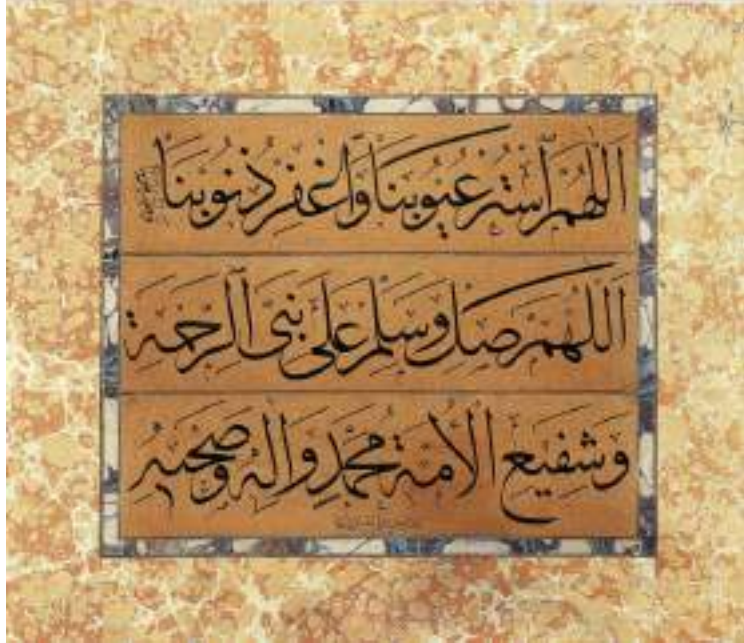 اَللّٰهُمَّ ٱسْتُرْ عُيُوبَنَا وَٱغْفِرْ ذُنُوبَنَا
اَللّٰهُمَّ صَلِّ وَسَلِّمْ عَلَى نَبِيِّ ٱلرَّحْمَةِ
وَشَفِيعِ الْأُمَّةِ مُحَمَّدٍ وَاٰلِهِ وَصَحْبِهِ